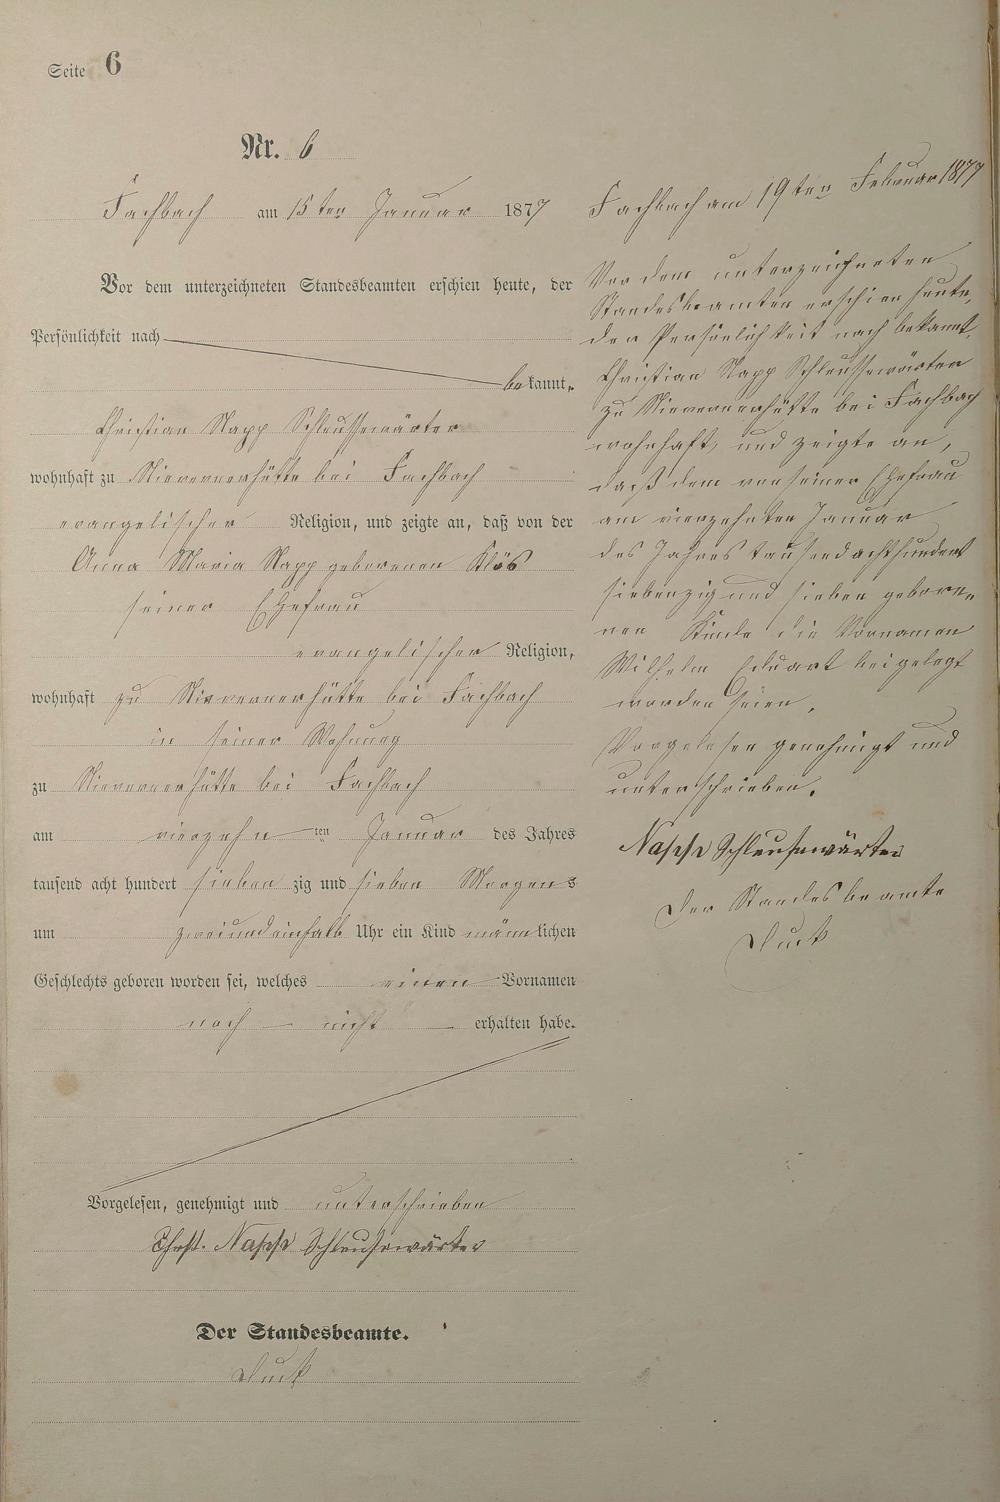 Seite 6
Nr. 6
Fachbach am 15ten Januar 1877
Vor dem unterzeichneten Standesbeamten erschien heute, der
Persönlichkeit nach
bekannt,
Christian Napp Schleussewärter
wohnhaft zu Nievernerhütte bei Fachbach
evangelischer Religion, und zeigte an, daß von der
Anna Maria Napp geborenen Klös
seiner Ehefrau
evangelischer Religion,
wohnhaft zu Nievernerhütte bei Fachbach
in seiner Wohnung
zu Nievernerhütte bei Fachbach
am vierzehn ten Januar des Jahres
tausend acht hundert sieben zig und sieben Morgens
um zweiundeinhalb Uhr ein Kind männlichen
Geschlechts geboren worden sei, welches einen Vornamen
noch nicht erhalten habe.
Vorgelesen, genehmigt und unterschrieben
Chrst. Napp Schleusewärter
Der Standesbeamte.
Fachbach am 19ten Februar 1877
Vor dem unterzeichneten
Standesbeamten erschien heute,
der Persönlichkeit nach bekannt,
Christian Napp Schleussewärter
zu Nievernerhütte bei Fachbach
wohnhaft, und zeigte an,
daß dem von seiner Ehefrau
am vierzehnten Januar
des Jahres tausendachthundert
siebenzig und sieben gebore-
nen Kinde die Vornamen
Wilhelm Eduart beigelegt
worden seien.
Vorgelesen genehmigt und
unterschrieben.
Napp Schleusewärter
Der Standesbeamte